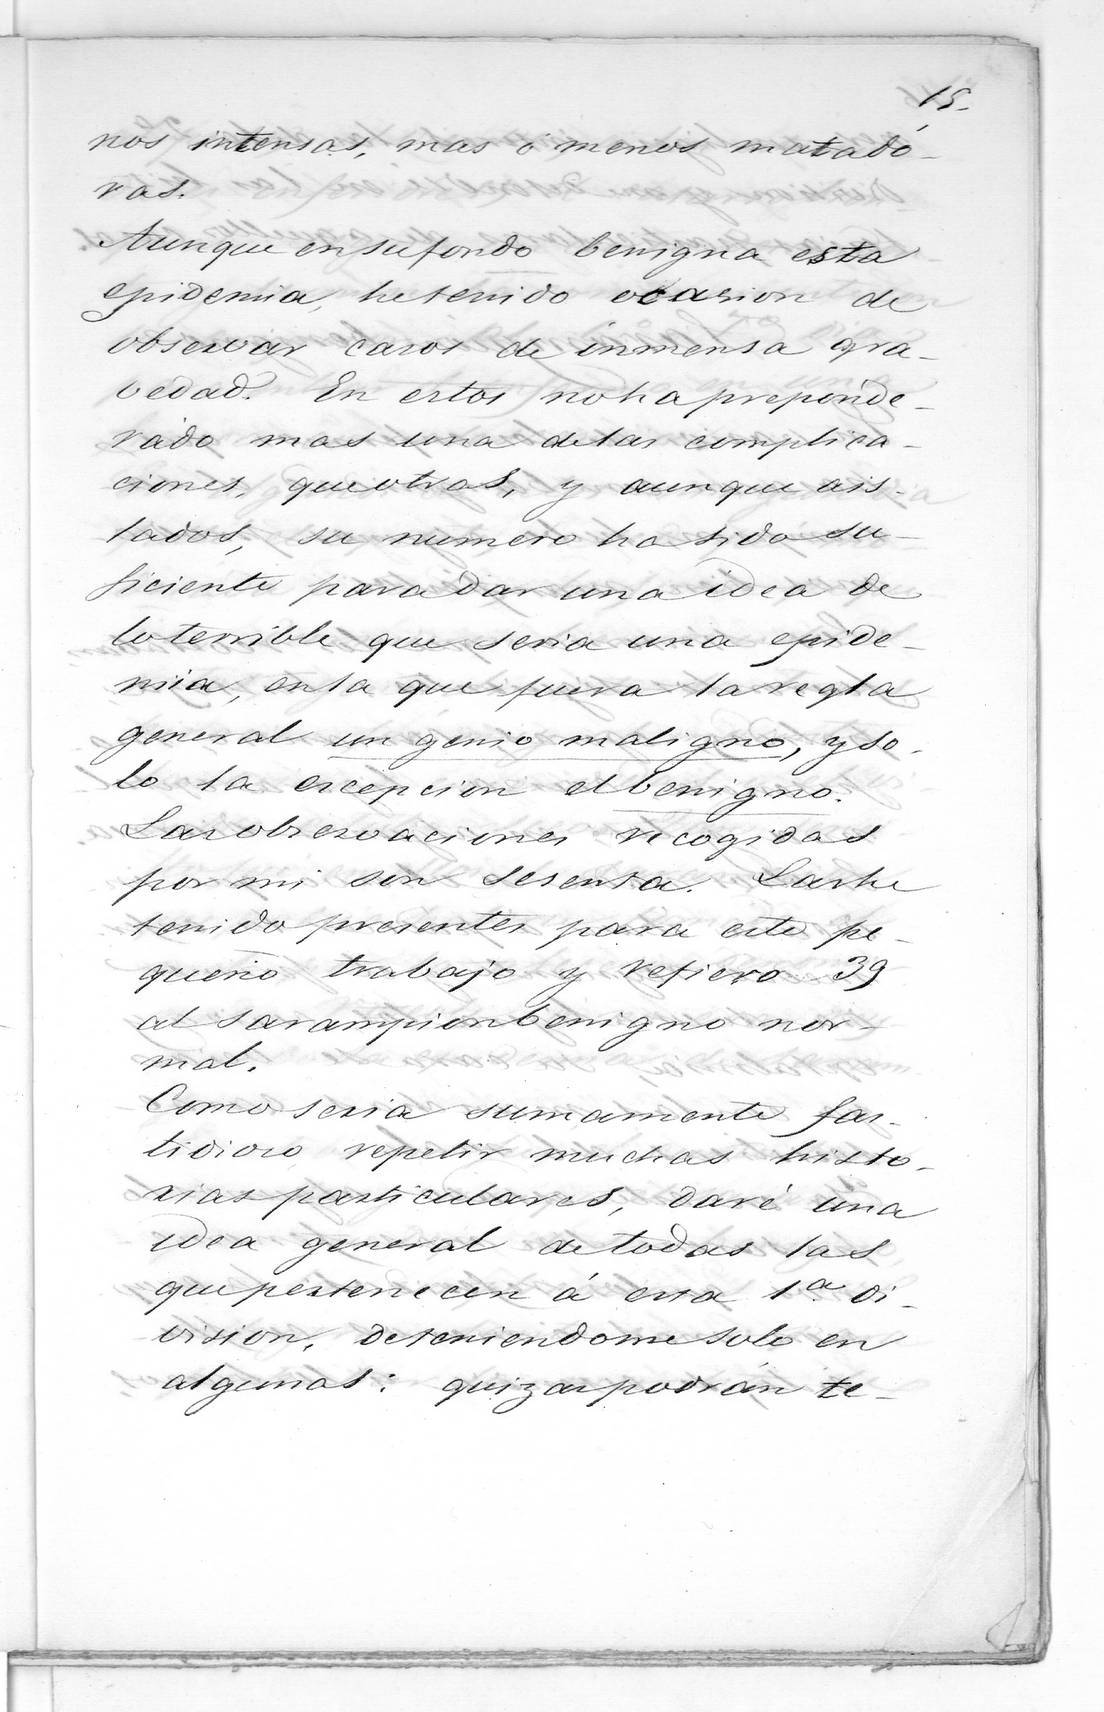 15.
nos intensas, mas ó menos matado-
ras.
Aunque en su fondo benigna esta
epidemia, he tenido ocasion de
observar casos de inmensa gra-
vedad. En estos no ha preponde-
rado mas una de las complica-
ciones, que otras, y aunque ais-
lados, su numero ha sido su-
ficiente para dar una idea de
lo terrible que seria una epide-
mia, en la que fuera la regla
general un genio maligno, y so-
lo la escepcion el benigno.
Las observaciones recogidas
por mi son sesenta. Las he
tenido presentes para este pe-
queño trabajo y refiero 39
al sarampion benigno nor-
mal.
Como seria sumamente fas-
tidioso repetir muchas histo-
rias particulares, daré una
idea general de todas las
que pertenecen á esta 1.ª di-
vision, deteniendome solo en
algunas: quizas podrán te-